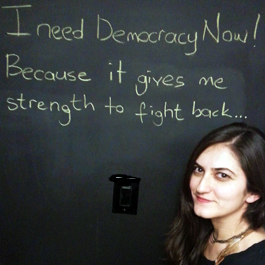 I need Democracy Now!
Because it gives me
strength to fight back...